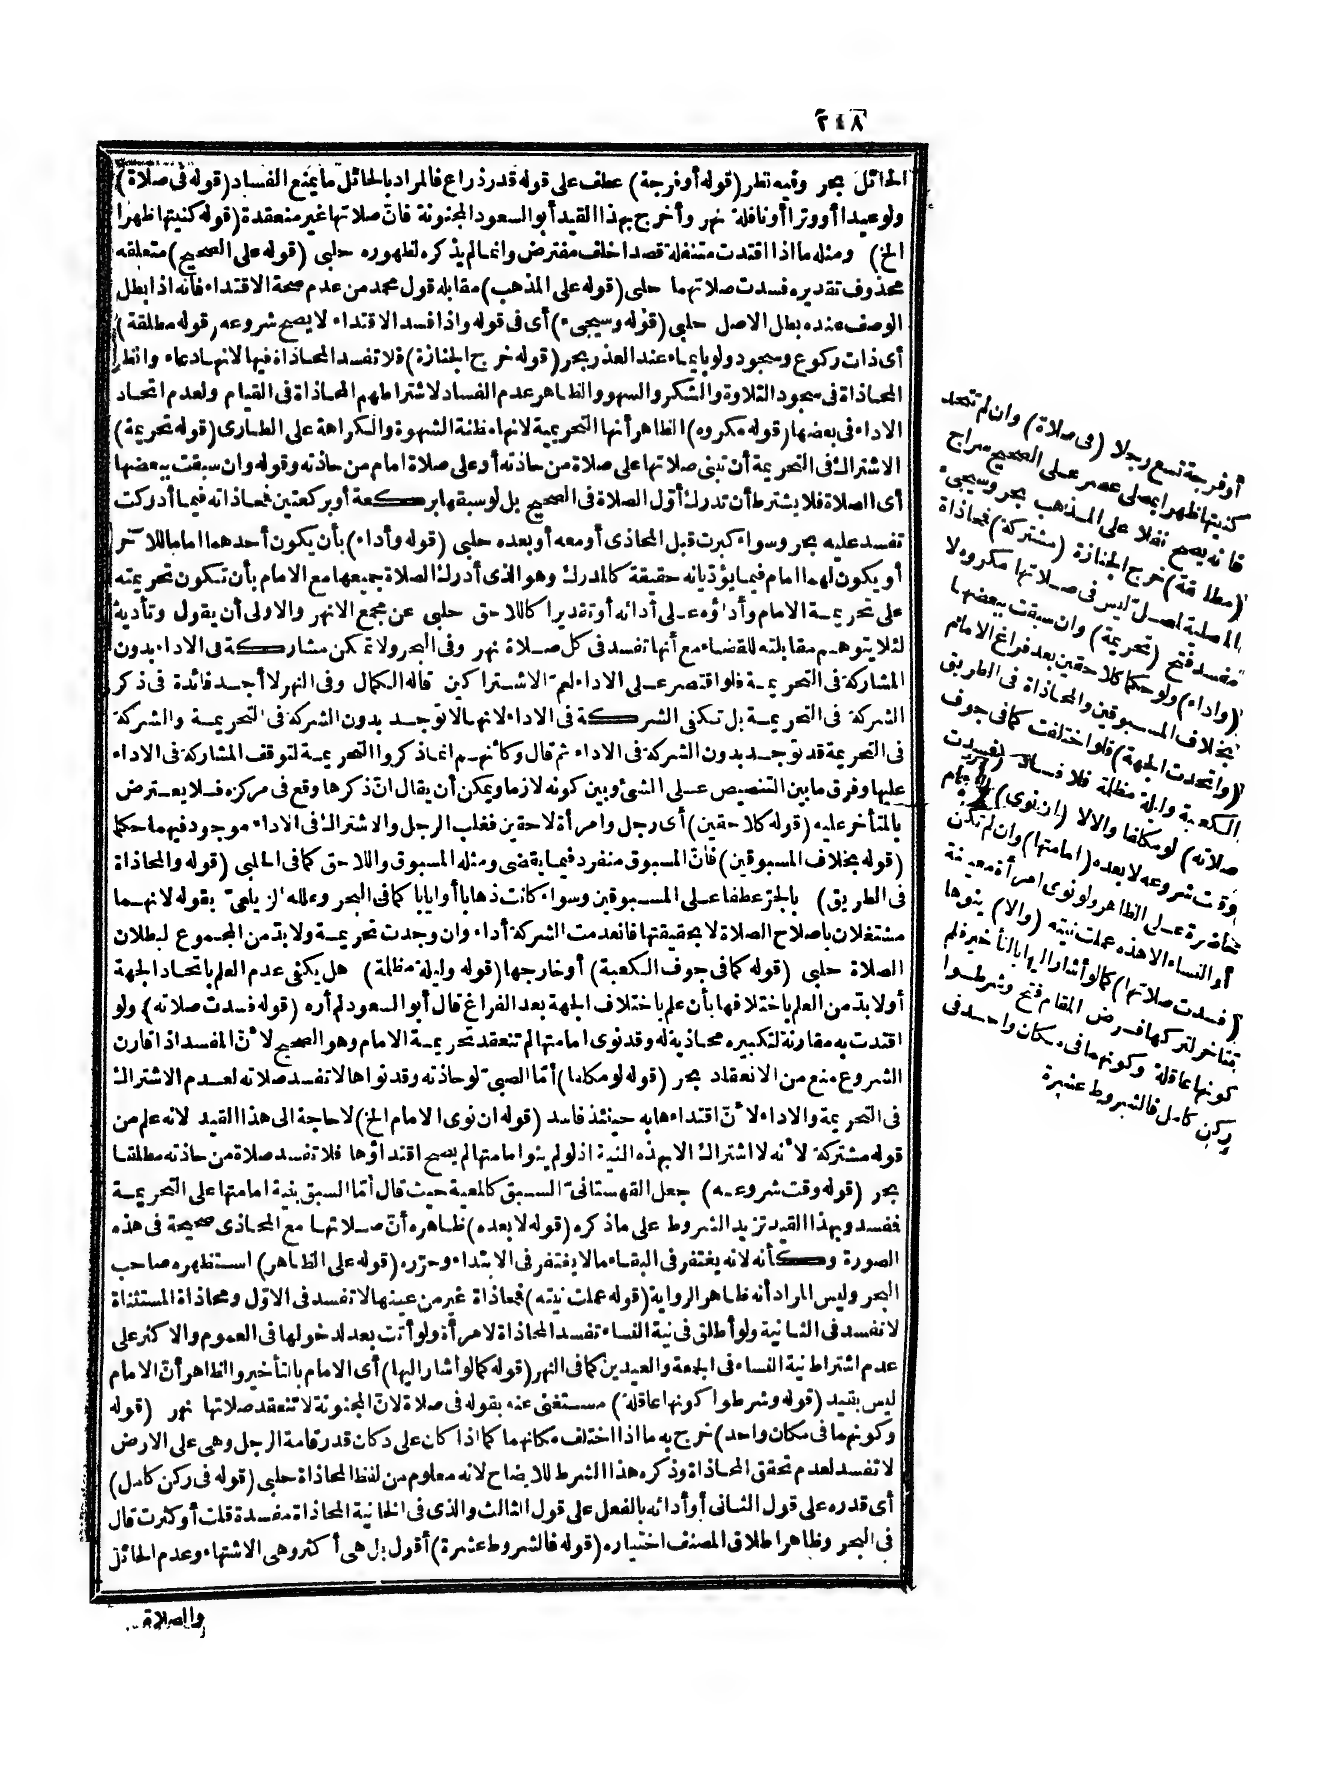 ٢٤٨
الحائل بحر وفيه نظر (قوله أو فرجة) عطف على قوله قدر ذراع فالمراد بالحائل ما يمنع الفساد (قوله فى صلاة)
ولو عيدا أو وترا أو نافلة نهر وأخرج بهذا القيد أبو السعود المجنونة فانّ صلاتها غير منعقدة (قوله كنيتها ظهرا
الخ) ومثله ما اذا اقتدت متنفلة قصدا خلف مفترض وانما لم يذكره لظهوره حلبى (قوله على الصحيح) متعلقه
محذوف تقديره فسدت صلاتهما حلبى (قوله على المذهب) مقابله قول محمد من عدم صحة الاقتداء فانه اذا بطل
الوصف عنده بطل الاصل حلبى (قوله وسيجىء) أى فى قوله واذا فسد الاقتداء لا يصح شروعه (قوله مطلقة)
أى ذات ركوع وسجود ولو بايماء عند العذر بحر (قوله خرج الجنازة) فلا تفسد المحاذاة فيها لانها دعاء وانظر
المحاذاة فى سجود التلاوة والشكر والسهو والظاهر عدم الفساد لاشتراطهم المحاذاة فى القيام ولعدم اتحاد
الاداء فى بعضها (قوله مكروه) الظاهر أنها التحريمية لانها مظنة الشهوة والكراهة على الطارى (قوله تحريمة)
الاشتراك فى التحريمة أن تبنى صلاتها على صلاة من حاذته أو على صلاة امام من حاذته وقوله وان سبقت ببعضها
أى الصلاة فلا يشترط أن تدرك أوّل الصلاة فى الصحيح بل لو سبقها بركعة أو بركعتين فحاذاته فيما أدركت
تفسد عليه بحر وسواء كبرت قبل المحاذى أو معه أو بعده حلبى (قوله وأداء) بأن يكون أحدهما اماما للآخر
أو يكون لهما امام فيما يؤدّيانه حقيقة كالمدرك وهو الذى أدرك الصلاة جميعها مع الامام بأن تكون تحريمته
على تحريمة الامام وأداؤه على أدائه أو تقديرا كاللاحق حلبى عن مجمع الانهر والاولى أن يقول وتأدية
لئلا يتوهم مقابلته للقضاء مع أنها تفسد فى كل صلاة نهر وفى البحر ولا تمكن مشاركة فى الاداء بدون
المشاركة فى التحريمة فلو اقتصر على الاداء لعمّ الاشتراكين قاله الكمال وفى النهر لا أجد فائدة فى ذكر
الشركة فى التحريمة بل تكفى الشركة فى الاداء لانها لا توجد بدون الشركة فى التحريمة والشركة
فى التحريمة قد توجد بدون الشركة فى الاداء ثم قال وكأنهم انما ذكروا التحريمة لتوقف المشاركة فى الاداء
عليها وفرق ما بين التنصيص على الشئ وبين كونه لازما ويمكن أن يقال انّ ذكرها وقع فى مركزه فلا يعترض
بالمتأخر عليه (قوله كلاحقين) أى رجل وامرأة لاحقين فغلب الرجل والاشتراك فى الاداء موجود فيهما حكما
(قوله بخلاف المسبوقين) فانّ المسبوق منفرد فيما يقضى ومثله المسبوق واللاحق كما فى الحلبى (قوله والمحاذاة
فى الطريق) بالجرّ عطفا على المسبوقين وسواء كانت ذهابا أو ايابا كما فى البحر وعلله الزيلعىّ بقوله لانهما
مشتغلان باصلاح الصلاة لا بحقيقتها فانعدمت الشركة أداء وان وجدت تحريمة ولا بدّ من المجموع لبطلان
الصلاة حلبى (قوله كما فى جوف الكعبة) أو خارجها (قوله وليلة مظلمة) هل يكفى عدم العلم باتحاد الجهة
أو لا بدّ من العلم باختلافها بأن علم باختلاف الجهة بعد الفراغ قال أبو السعود لم أره (قوله فسدت صلاته) ولو
اقتدت به مقارنة لتكبيره محاذية له وقد نوى امامتها لم تنعقد تحريمة الامام وهو الصحيح لأنّ المفسد اذا قارن
الشروع منع من الانعقاد بحر (قوله لو مكلفا) أمّا الصبىّ لو حاذته وقد نواها لا تفسد صلاته لعدم الاشتراك
فى التحريمة والاداء لأنّ اقتداءها به حينئذ فاسد (قوله ان نوى الامام الخ) لا حاجة الى هذا القيد لانه علم من
قوله مشتركة لأنه لا اشتراك الا بهذه النية اذ لو لم ينو امامتها لم يصح اقتداؤها فلا تفسد صلاة من حاذته مطلقا
بحر (قوله وقت شروعه) جعل القهستانىّ السبق كالمعية حيث قال أمّا السبق بنية امامتها على التحريمة
فمفسد وبهذا القيد تزيد الشروط على ما ذكره (قوله لا بعده) ظاهره أنّ صلاتها مع المحاذى صحيحة فى هذه
الصورة وكأنه لانه يغتفر فى البقاء ما لا يغتفر فى الابتداء وحرّره (قوله على الظاهر) استظهره صاحب
البحر وليس المراد أنه ظاهر الرواية (قوله عملت نيته) فمحاذاة غير من عينها لا تفسد فى الاوّل ومحاذاة المستثناة
لا تفسد فى الثانية ولو أطلق فى نية النساء تفسد المحاذاة لامرأة ولو أتت بعد لدخولها فى العموم والاكثر على
عدم اشتراط نية النساء فى الجمعة والعيدين كما فى النهر (قوله كما لو أشار اليها) أى الامام بالتأخير والظاهر أنّ الامام
ليس بقيد (قوله وشرطوا كونها عاقلة) مستغنى عنه بقوله فى صلاة لانّ المجنونة لا تنعقد صلاتها نهر (قوله
وكونهما فى مكان واحد) خرج به ما اذا اختلف مكانهما كما اذا كان على دكان قدر قامة الرجل وهى على الارض
لا تفسد لعدم تحقق المحاذاة وذكره هذا الشرط للايضاح لانه معلوم من لفظ المحاذاة حلبى (قوله فى ركن كامل)
أى قدره على قول الثانى أو أدائه بالفعل على قول الثالث والذى فى الخانية المحاذاة مفسدة قلت أو كثرت قال
فى البحر وظاهر اطلاق المصنف اختياره (قوله فالشروط عشرة) أقول بل هى أكثر وهى الاشتهاء وعدم الحائل
والصلاة
أو فرجة تسع رجلا (فى صلاة) وان لم تتحد
كنيتها ظهرا بمصلى عصر على الصحيح سراج
فانه يصح نفلا على المذهب بحر وسيجىء
(مطلقة) خرج الجنازة (مشتركة) فمحاذاة
المصلية لمصل ليس فى صلاتها مكروه لا
مفسد فتح (تحريمة) وان سبقت ببعضها
(وأداء) ولو حكما كلاحقين بعد فراغ الامام
بخلاف المسبوقين والمحاذاة فى الطريق
(واتحدت الجهة) فلو اختلفت كما فى جوف
الكعبة وليلة مظلمة فلا فساد (فسدت
صلاته) لو مكلفا والا لا (ان نوى) الامام
وقت شروعه لا بعده (امامتها) وان لم تكن
حاضرة على الظاهر ولو نوى امرأة معينة
أو النساء الا هذه عملت نيته (والا) ينوها
(فسدت صلاتها) كما لو أشار اليها بالتأخير فلم
تتأخر لتركها فرض المقام فتح وشرطوا
كونها عاقلة وكونهما فى مكان واحد فى
ركن كامل فالشروط عشرة